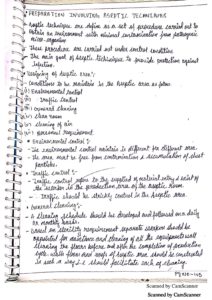 PREPARATION INVOLVING ASEPTIC TECHNIQUES
Aseptic technique are define as a set of procedure carried out to
obtain an environment with minimal contamination from pathogenic
micro-organism.
These procedure are carried out under control condition
The main goal of aseptic technique to provide protection against
infection.
Designing of aseptic area:-
Conditions to be maintain in the aseptic area as follows
(i) Environmental control
(ii) Traffic control
(iii) General cleaning
(iv) Clean room
(v) cleaning of air
(vi) personal requirement
Environmental control:-
The environmental control maintain is different for different area.
The area must be free from contamination & accumulation of dust
particles.
Traffic control:-
Traffic control refer to the supplied of material entry & exist of
the worker in the production area of the aseptic room.
Traffic should be strictly control in the aseptic area.
General cleaning:-
A cleaning schedule should be developed and followed on a daily
or monthly basis.
Based on sterility requirement separate workers should be
appointed for maintain and cleaning of all the equipments &
cleaning the floors before and after the completion of production
cycle. Walls floors and roofs of aseptic area should be constructed
in such a way & should facilitate each of cleaning.
Scanned by CamScanner
Scanned by CamScanner